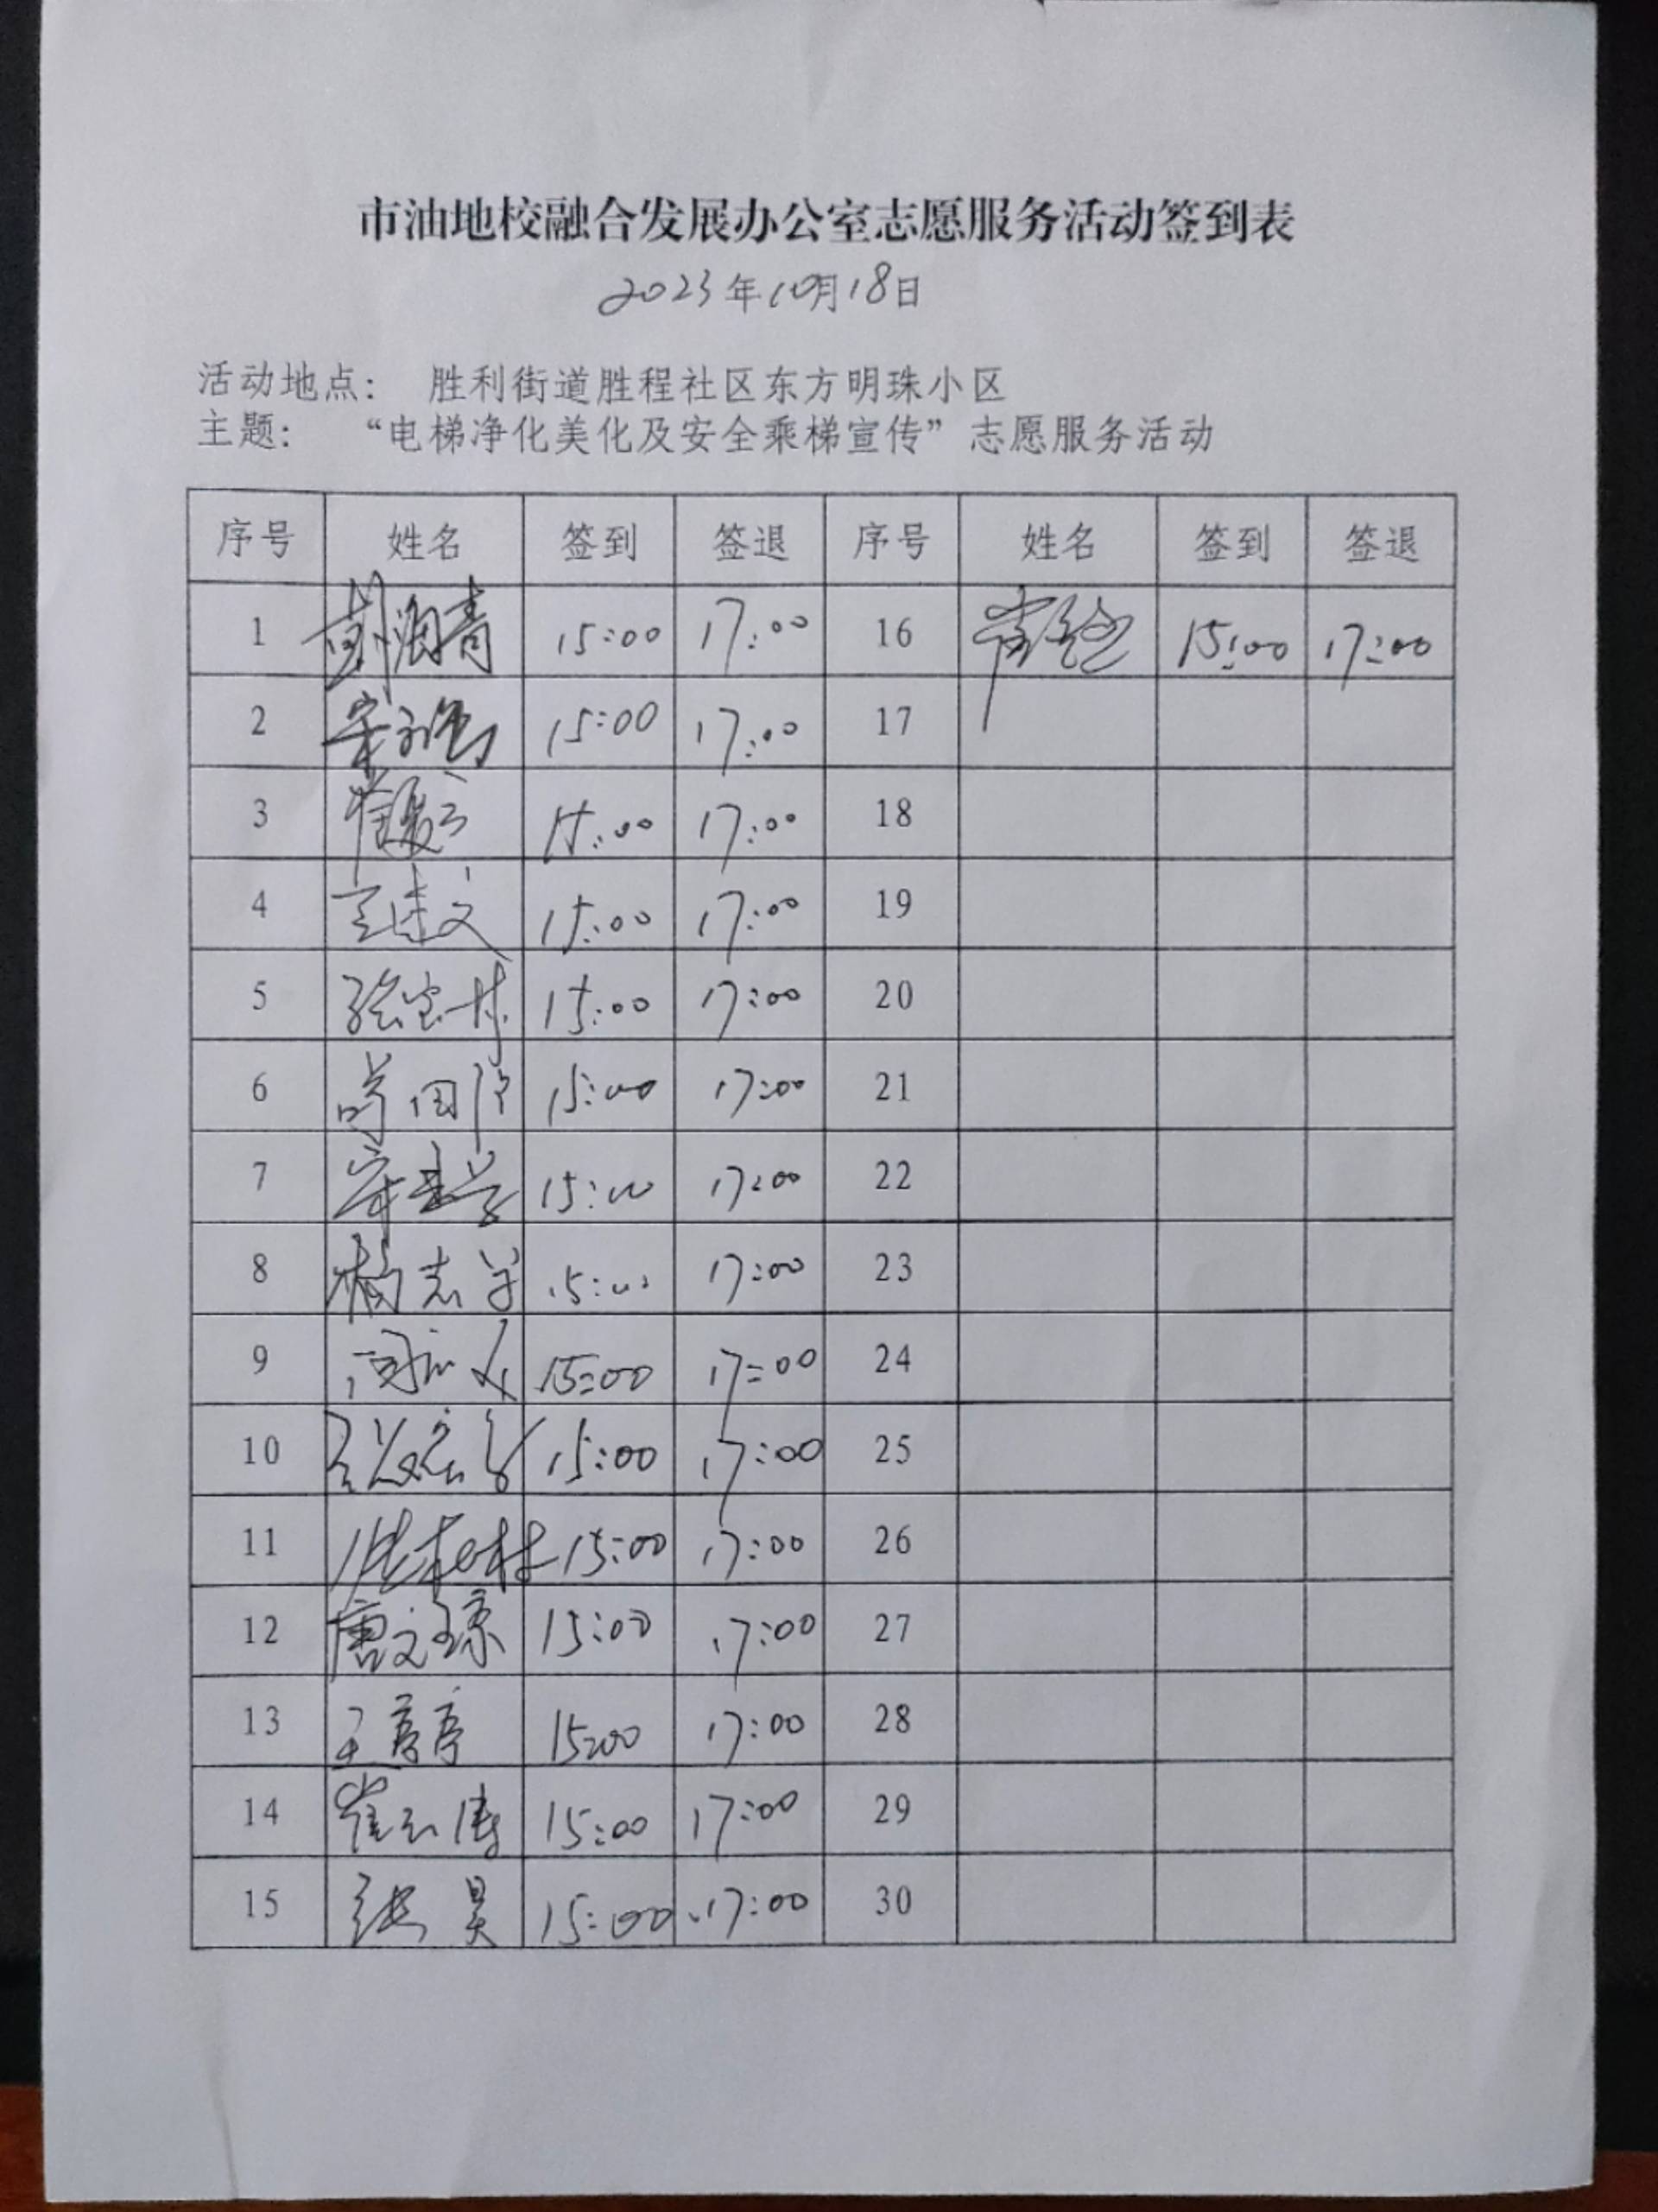 市油地校融合发展办公室志愿服务活动签到表
2023年10月18日
活动地点： 胜利街道胜程社区东方明珠小区
主题： “电梯净化美化及安全乘梯宣传”志愿服务活动
序号 姓名 签到 签退 序号 姓名 签到 签退
1 15:00 17:00 16 15:00 17:00
2 15:00 17:00 17
3 15:00 17:00 18
4 15:00 17:00 19
5 15:00 17:00 20
6 15:00 17:00 21
7 15:00 17:00 22
8 杨志学 15:00 17:00 23
9 15:00 17:00 24
10 15:00 17:00 25
11 15:00 17:00 26
12 唐文琼 15:00 17:00 27
13 王亭亭 15:00 17:00 28
14 崔云涛 15:00 17:00 29
15 张昊 15:00 17:00 30